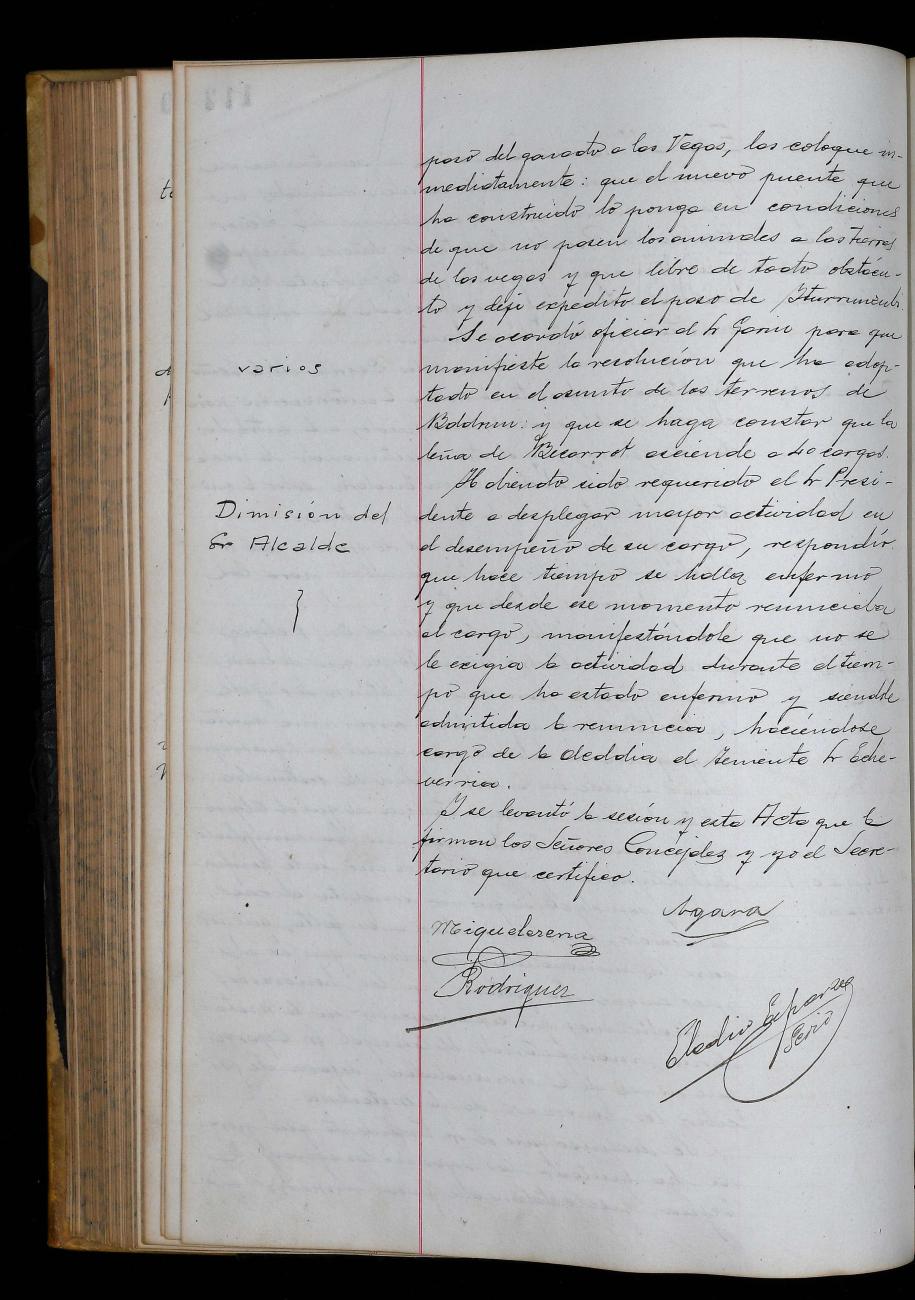 paso del ganado a las Vegas, las coloque in-
mediatamente: que el nuevo puente que
ha construido lo ponga en condiciones
de que no pasen los animales a las tierras
de las vegas y que libre de todo obstácu-
lo y deje expedito el paso de
varios
Se acordó oficiar al Sr Garin para que
manifieste la resolución que ha adop-
tado en el asunto de los terrenos de
y que se haga constar que la
leña de Becarrot asciende a 40 cargas.
Dimisión del
Sr Alcalde
Habiendo sido requerido el Sr Presi-
dente a desplegar mayor actividad en
el desempeño de su cargo, respondió
que hace tiempo se halla enfermo
y que desde ese momento renunciaba
el cargo, manifestándole que no se
le exigia la actividad durante el tiem-
po que ha estado enfermo y siendole
admitida la renuncia, haciéndose
cargo de la Alcaldia el Teniente Sr Eche-
verria.
Y se levantó la sesión y esta Acta que la
firman los Señores Concejales y yo el Secre-
tario que certifico.
Miquelarena
Rodriguez
Eladio Esparza
Serio